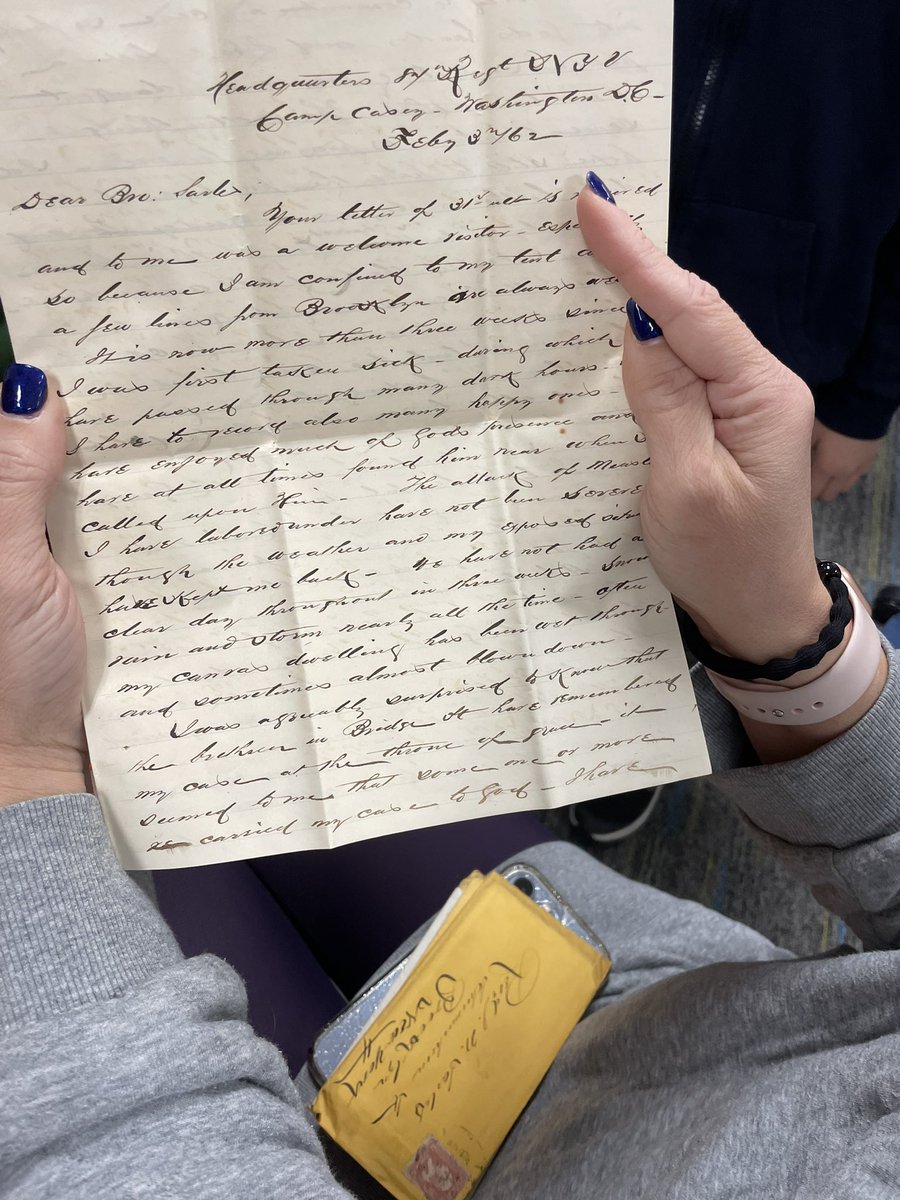 Headquarters 87th Regt N Y V
Camp Casey - Washington D.C-
Feby 3rd/62
Dear Bro: Sarles,
Your letter of 31st ult is
and to me was a welcome visitor -
so because I am confined to my tent
a few lines from Brooklyn are always
It is now more than three weeks since
I was first taken sick - during which
have passed through many dark hours -
I have to record also many happy ones -
have enjoyed much of Gods presence and
have at all times found him near when I
called upon Him - The attack of
I have labored under have not been severe
though the weather and my exposed
have kept me back - We have not had a
clear day throughout in three weeks - Snow
rain and storm nearly all the time - often
my canvas dwelling has been wet through
and sometimes almost blown down -
I was agreeably surprised to know that
the brethren in Bridge St have remembered
my case at the throne of grace - it
seemed to me that some one or more
carried my case to God - I have
Rev J. W. Sarles